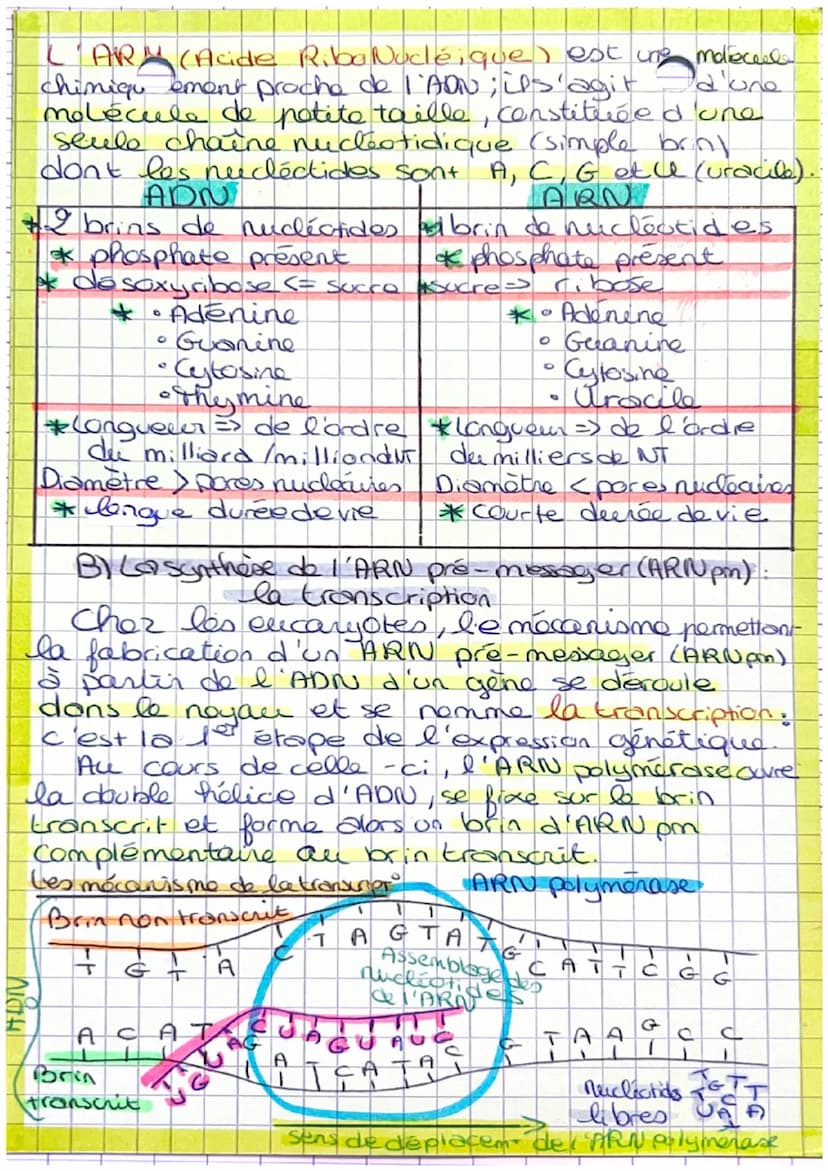 L'ARN (Acide RiboNucléique) est une molécule
chimiquement proche de l'ADN ; il s'agit d'une
molécule de petite taille, constituée d'une
seule chaîne nucléotidique (simple brin)
dont les nucléotides sont A, C, G et U (uracile).
ADN
* 2 brins de nucléotides
* phosphate présent
* désoxyribose <= sucre
* • Adénine
• Guanine
• Cytosine
• Thymine
* Longueur => de l'ordre
du milliard/million d NT
Diamètre > pores nucléaires
* longue durée de vie
ARN
* 1 brin de nucléotides
* phosphate présent
* sucre => ribose
* • Adénine
• Guanine
• Cytosine
• Uracile
* Longueur => de l'ordre
du milliers de NT
Diamètre < pores nucléaires
* courte durée de vie
B) La synthèse de l'ARN pré-messager (ARN pm) :
la transcription
Chez les eucaryotes, le mécanisme permettant
la fabrication d'un ARN pré-messager (ARN pm)
à partir de l'ADN d'un gène se déroule
dans le noyau et se nomme la transcription :
c'est la 1er étape de l'expression génétique.
Au cours de celle-ci, l'ARN polymérase ouvre
la double hélice d'ADN, se fixe sur le brin
transcrit et forme alors un brin d'ARN pm
complémentaire au brin transcrit.
Les mécanisme de la transcript°
ARN polymérase
Brin non transcrit
T G T A C T A G T A T G C A T T C G G
Assemblage des
nucléotides
de l'ARN
ADN
U G U A G C U A G U A U G
A C A T A T C A T A C G T A A G C C
Brin
transcrit
Nucléotids
libres
T G T T
U A C A
sens de déplacemt de l'ARN polymérase